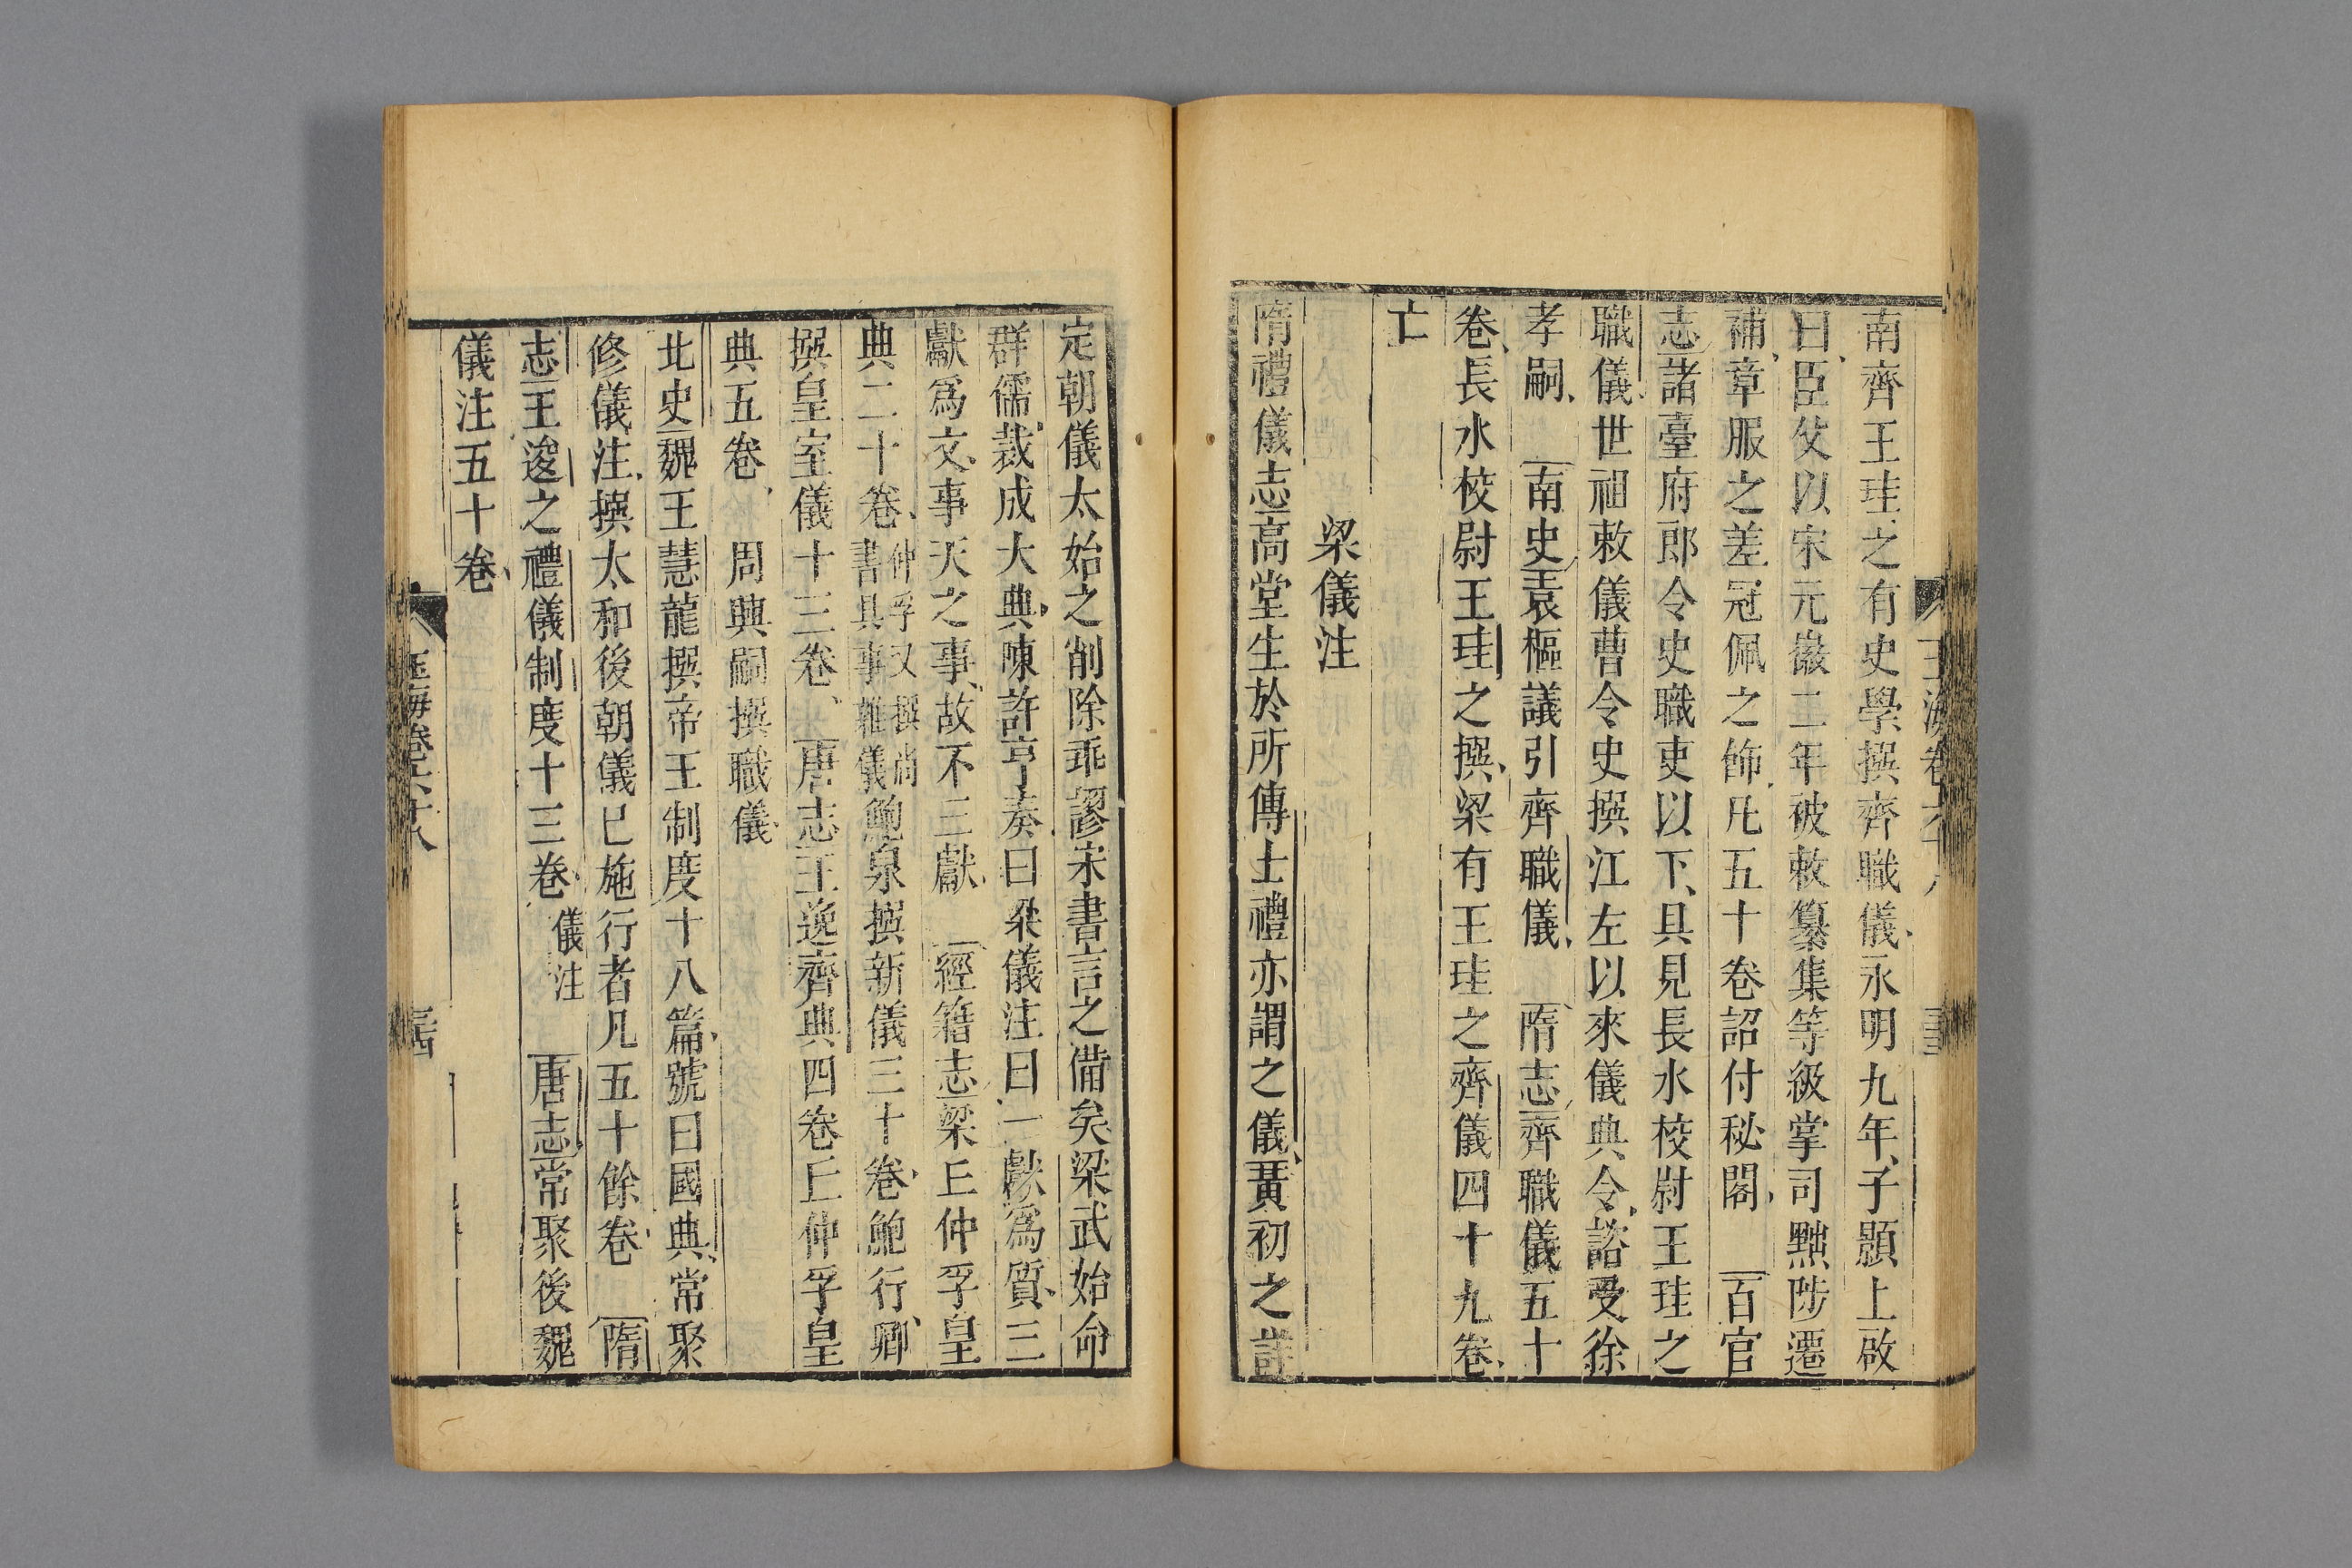 南齊王珪之有史學撰齊職儀永明九年子顥上啟
曰臣父以宋元徽二年被敕纂集等級掌司黜陟遷
補章服之差冠佩之飾凡五十卷詔付秘閣　百官
志諸臺府郎令史職吏以下具見長水校尉王珪之
職儀世祖敕儀曹令史撰江左以來儀典令諮受徐
孝嗣　南史袁樞議引齊職儀　隋志齊職儀五十
卷長水校尉王珪之撰梁有王珪之齊儀四十九卷
亡
梁儀注
隋禮儀志高堂生於所傳士禮亦謂之儀黃初之詳
定朝儀太始之削除乖謬宋書言之備矣梁武始命
群儒裁成大典陳許亨奏曰梁儀注曰一獻爲質三
獻爲文事天之事故不三獻　經籍志梁丘仲孚皇
典二十卷仲孚又撰尚書具事雜儀鮑泉撰新儀三十卷鮑行卿
撰皇室儀十三卷　唐志王逸齊典四卷丘仲孚皇
典五卷　周興嗣撰職儀
北史魏王慧龍撰帝王制度十八篇號曰國典常聚
修儀注撰太和後朝儀已施行者凡五十餘卷　隋
志王逡之禮儀制度十三卷儀注　唐志常聚後魏
儀注五十卷
玉海卷六十八